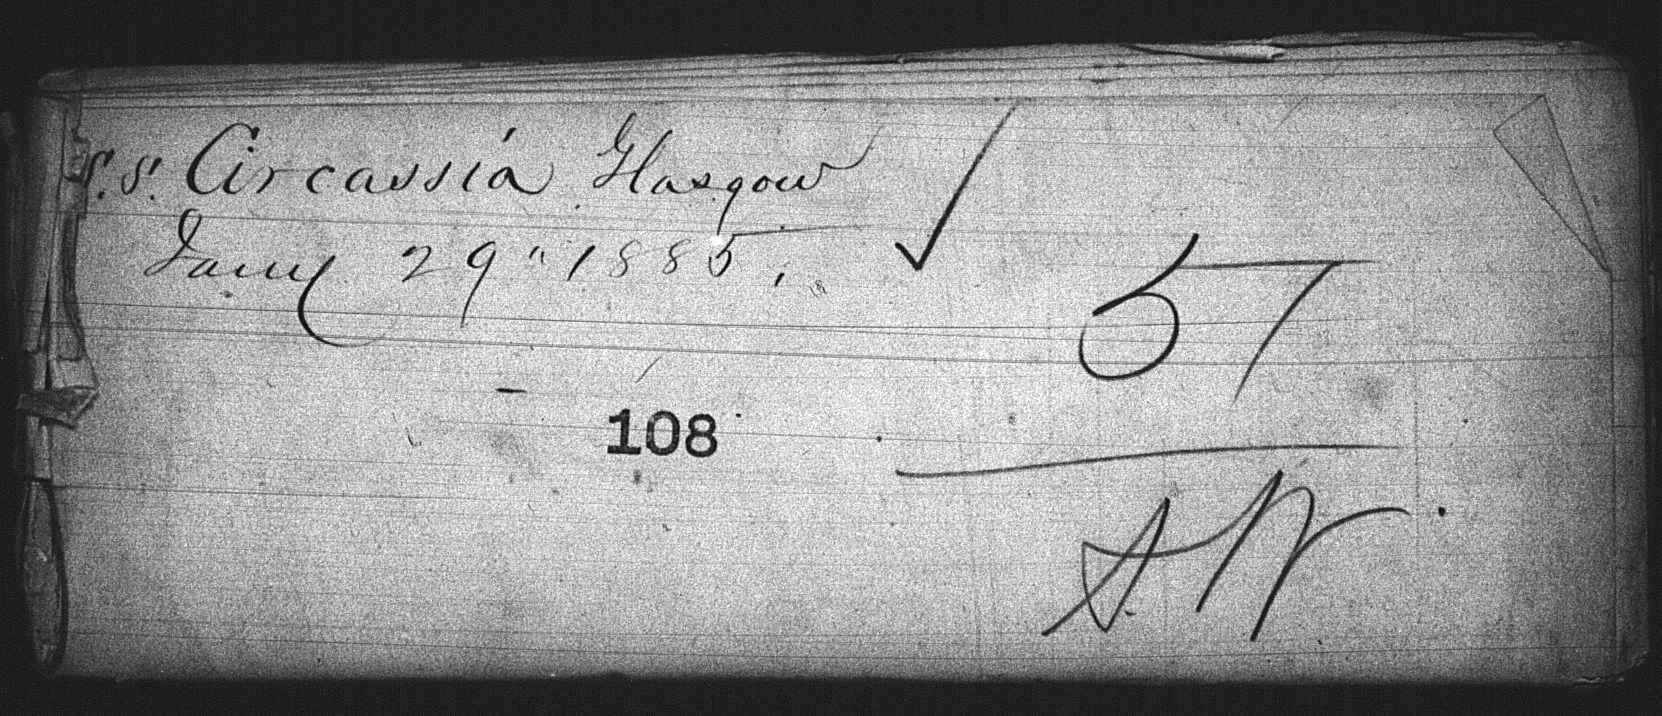 S.S. Circassia Glasgow
Jany 29" 1885.
57
108